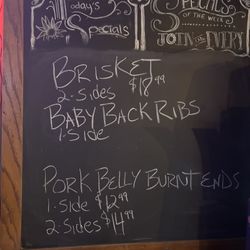 Today's
Specials
SPECIALS
OF THE WEEK
JOIN EVERY
BRISKET
2-Sides $18.99
BABY BACK RIBS
1-Side
PORK BELLY BURNT ENDS
1-Side $12.99
2-Sides $14.99